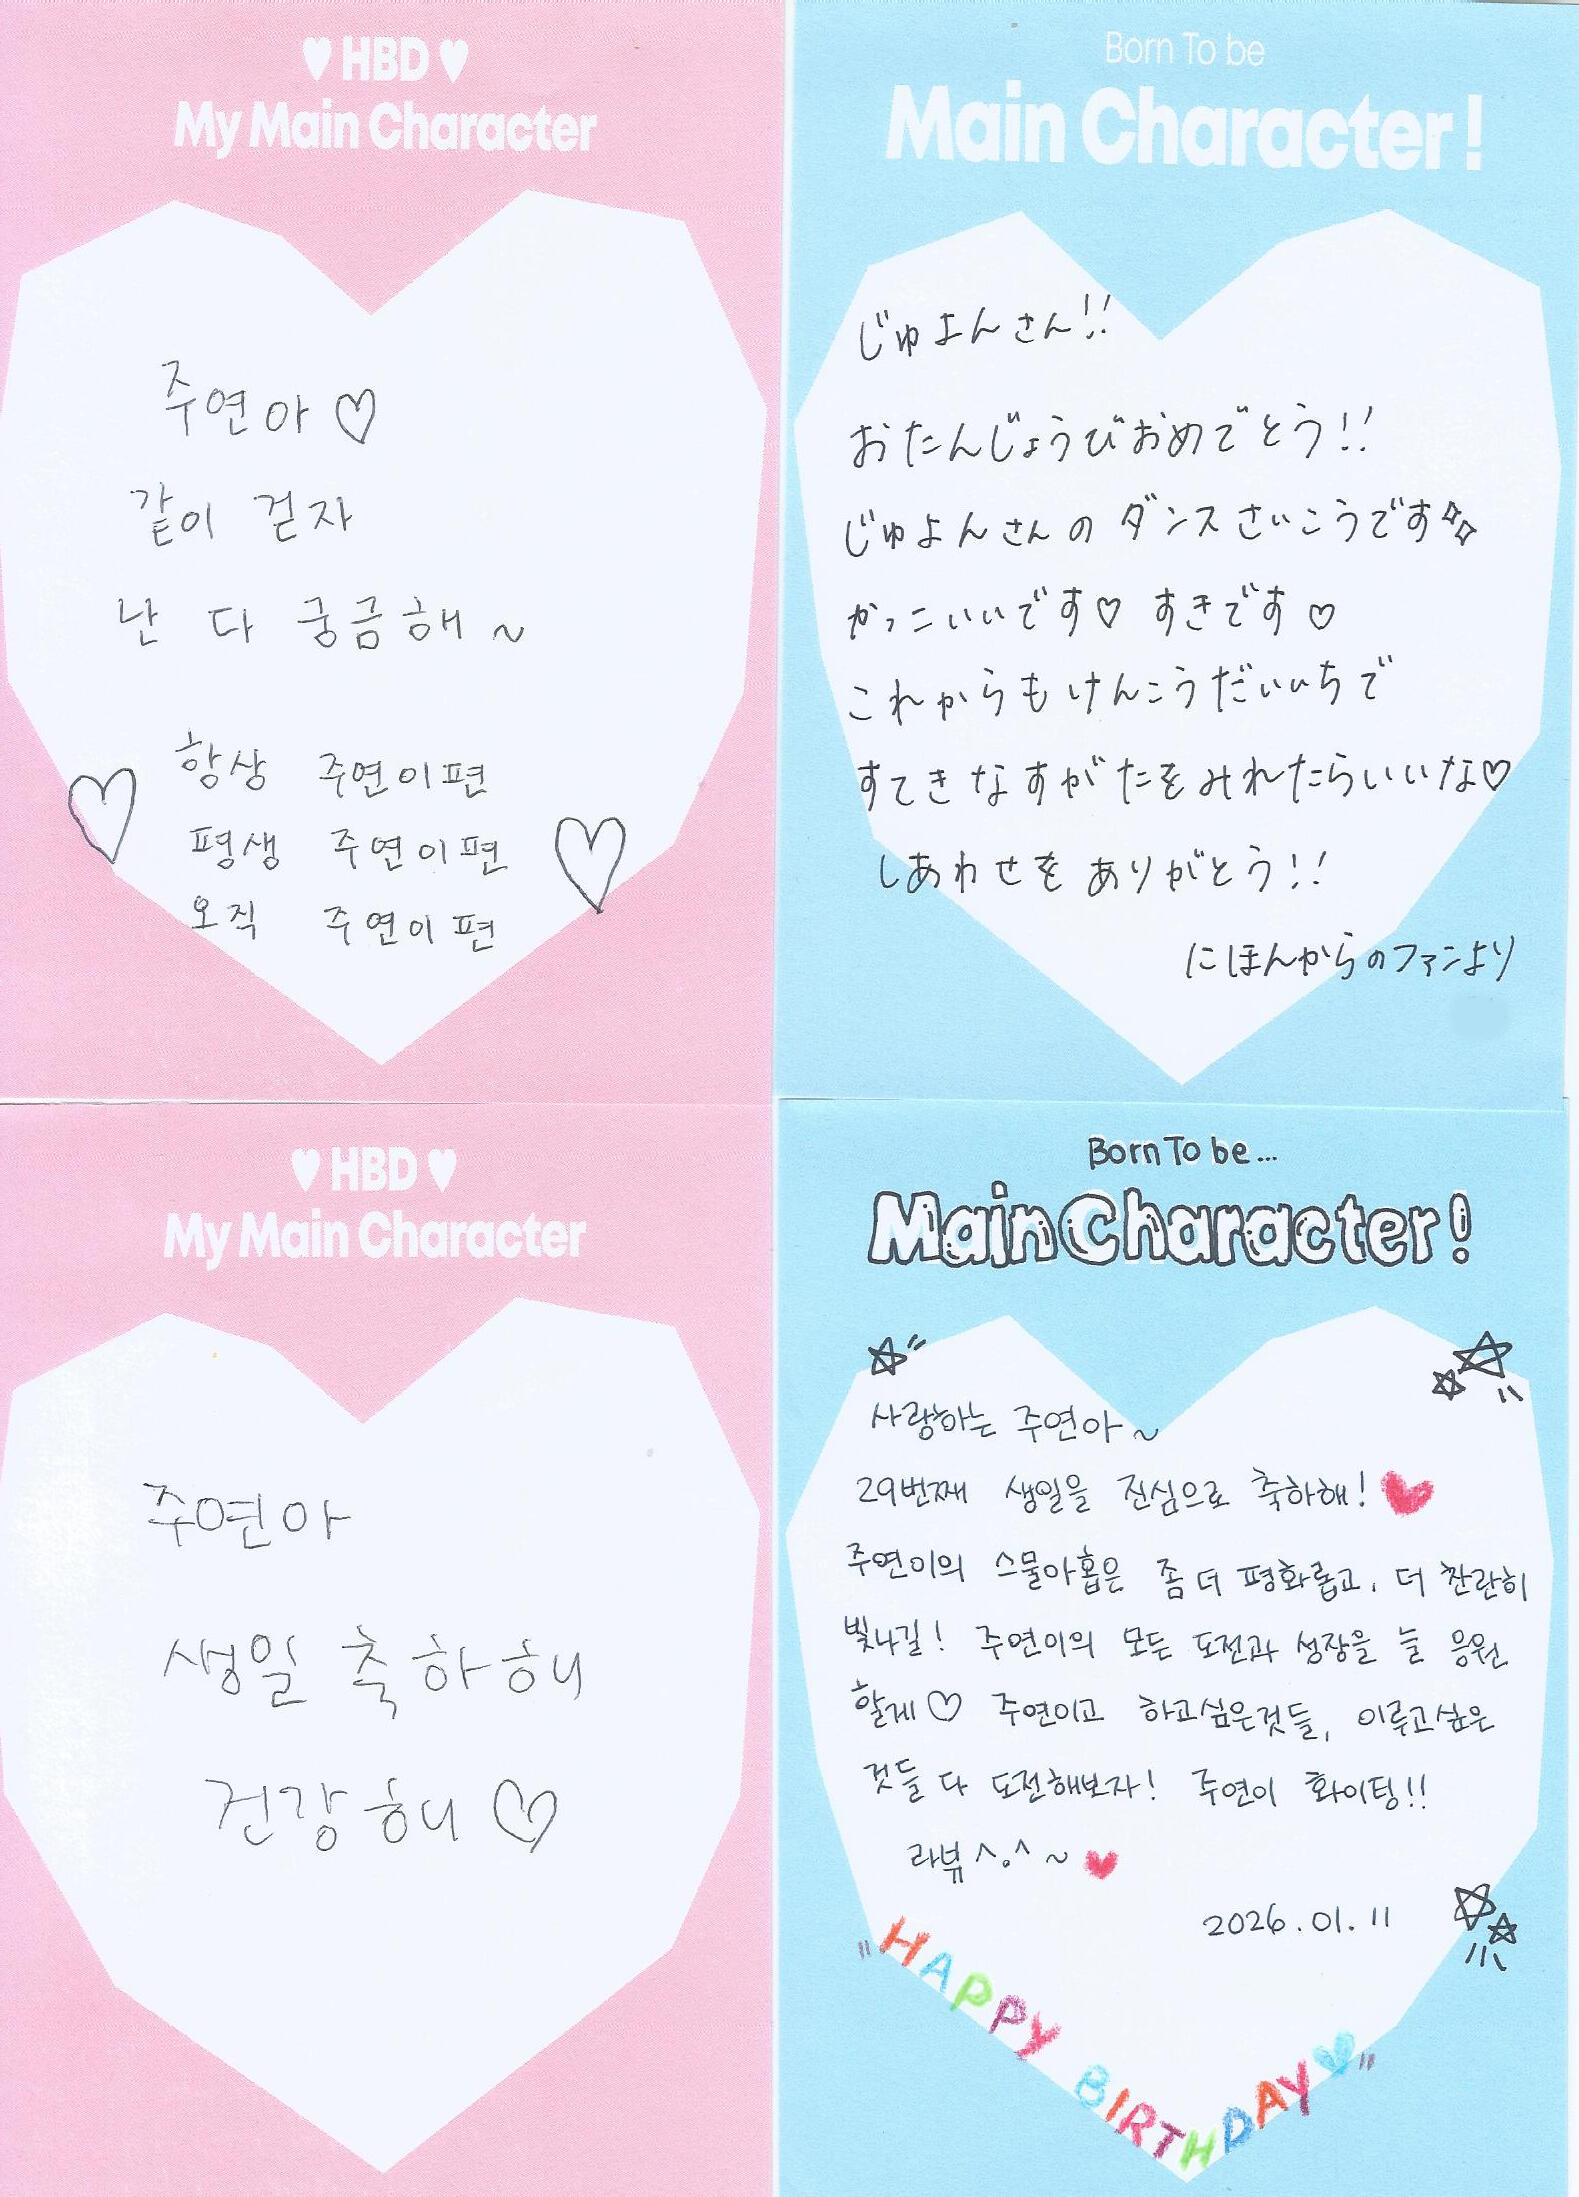 ♥ HBD ♥
My Main Character
주연아 ♡
같이 걷자
난 다 궁금해 ~
항상 주연이편
평생 주연이편
오직 주연이편
Born To be
Main Character!
じゅよんさん!!
おたんじょうびおめでとう!!
じゅよんさんの ダンスさいこうです
かっこいいです♡ すきです♡
これからもけんこうだいいちで
すてきなすがたをみれたらいいな♡
しあわせを ありがとう!!
にほんからのファンより
♥ HBD ♥
My Main Character
주연아
생일 축하해
건강해 ♡
Born To be...
Main Character!
사랑하는 주연아~
29번째 생일을 진심으로 축하해! ♥
주연이의 스물아홉은 좀 더 평화롭고, 더 찬란히
빛나길! 주연이의 모든 도전과 성장을 늘 응원
할게♡ 주연이고 하고싶은것들, 이루고싶은
것들 다 도전해보자! 주연이 화이팅!!
라뷰 ^.^ ~ ♥
2026.01.11
"HAPPY BIRTHDAY♥"